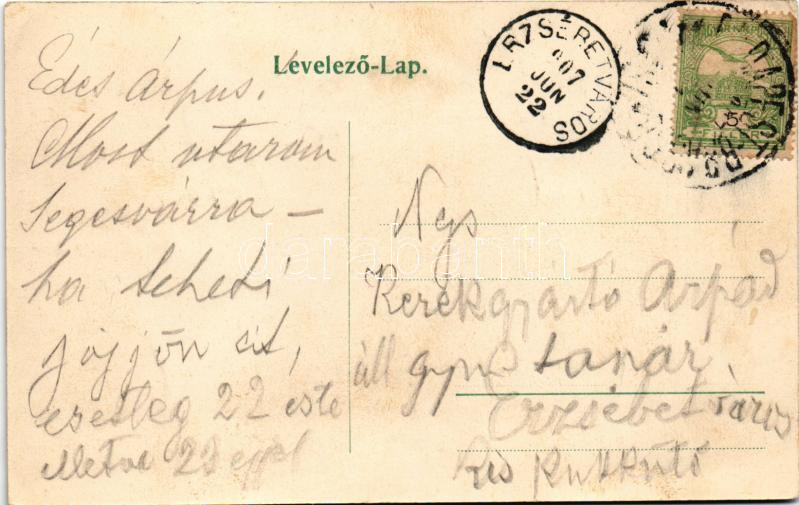 Levelező-Lap.
ERZSÉBETVÁROS
907
JUN
22
Édes Árpus.
Most utazom
Segesvárra —
ha teheti
jöjjön át,
esetleg 22 este
illetve 23
Ngs
Kerékgyártó Árpád
áll gym tanár
Erzsébetváros
Kis
darabanth